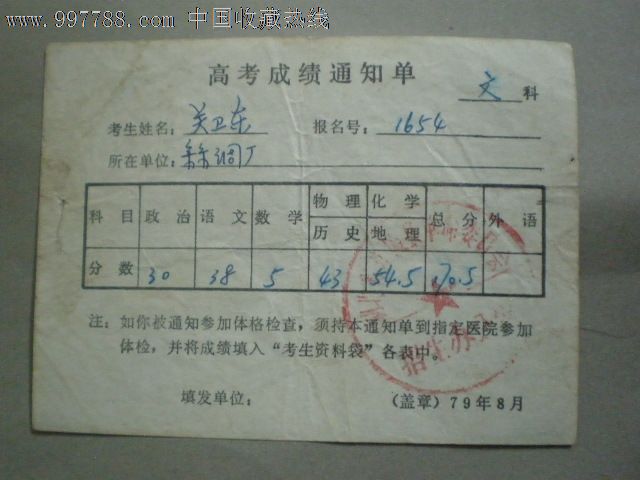 www.997788.com 中国收藏热线
高考成绩通知单
文科
考生姓名：关卫东 报名号：1654
所在单位：
科目 政治 语文 数学 物理 化学 总分 外语
历史 地理
分数 30 38 5 43 54.5 170.5
注：如你被通知参加体格检查，须持本通知单到指定医院参加
体检，并将成绩填入“考生资料袋”各表中。
招生办公室
填发单位： （盖章）79年8月